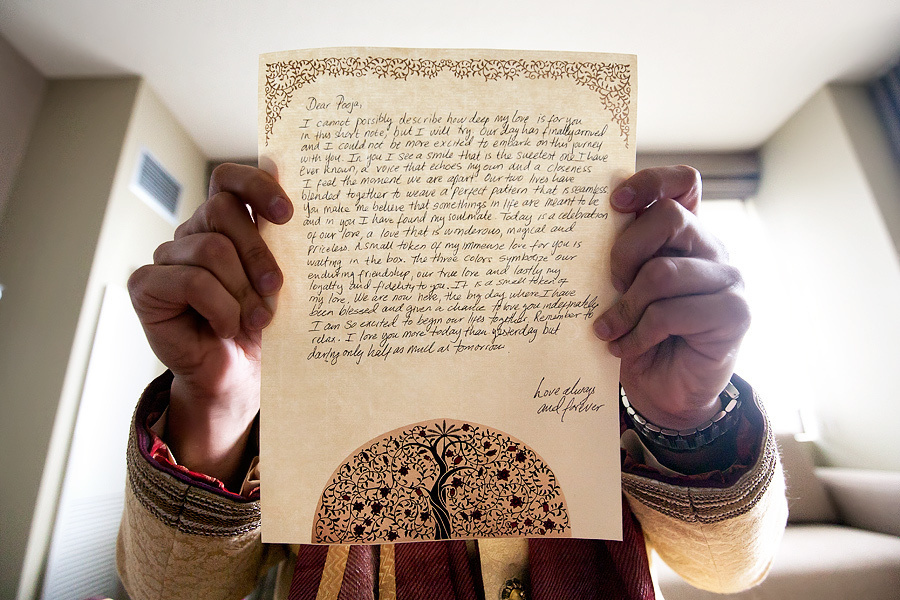 Dear Pooja,
I cannot possibly describe how deep my love is for you
in this short note, but I will try. Our day has finally arrived
and I could not be more excited to embark on this journey
with you. In you I see a smile that is the sweetest one I have
ever known, a voice that echoes my own and a closeness
I feel the moment we are apart. Our two lives have
blended together to weave a perfect pattern that is seamless.
You make me believe that somethings in life are meant to be
and in you I have found my soulmate. Today is a celebration
of our love, a love that is wonderous, magical and
priceless. A small token of my immense love for you is
waiting in the box. The three colors symbolize our
enduring friendship, our true love and lastly my
loyalty and fidelity to you. It is a small token of
my love. We are now here, the big day where I have
been blessed and given a chance to love you indefinitely
I am so excited to begin our lives together. Remember to
relax. I love you more today than yesterday but
darling only half as much as tomorrow.
Love always
and forever